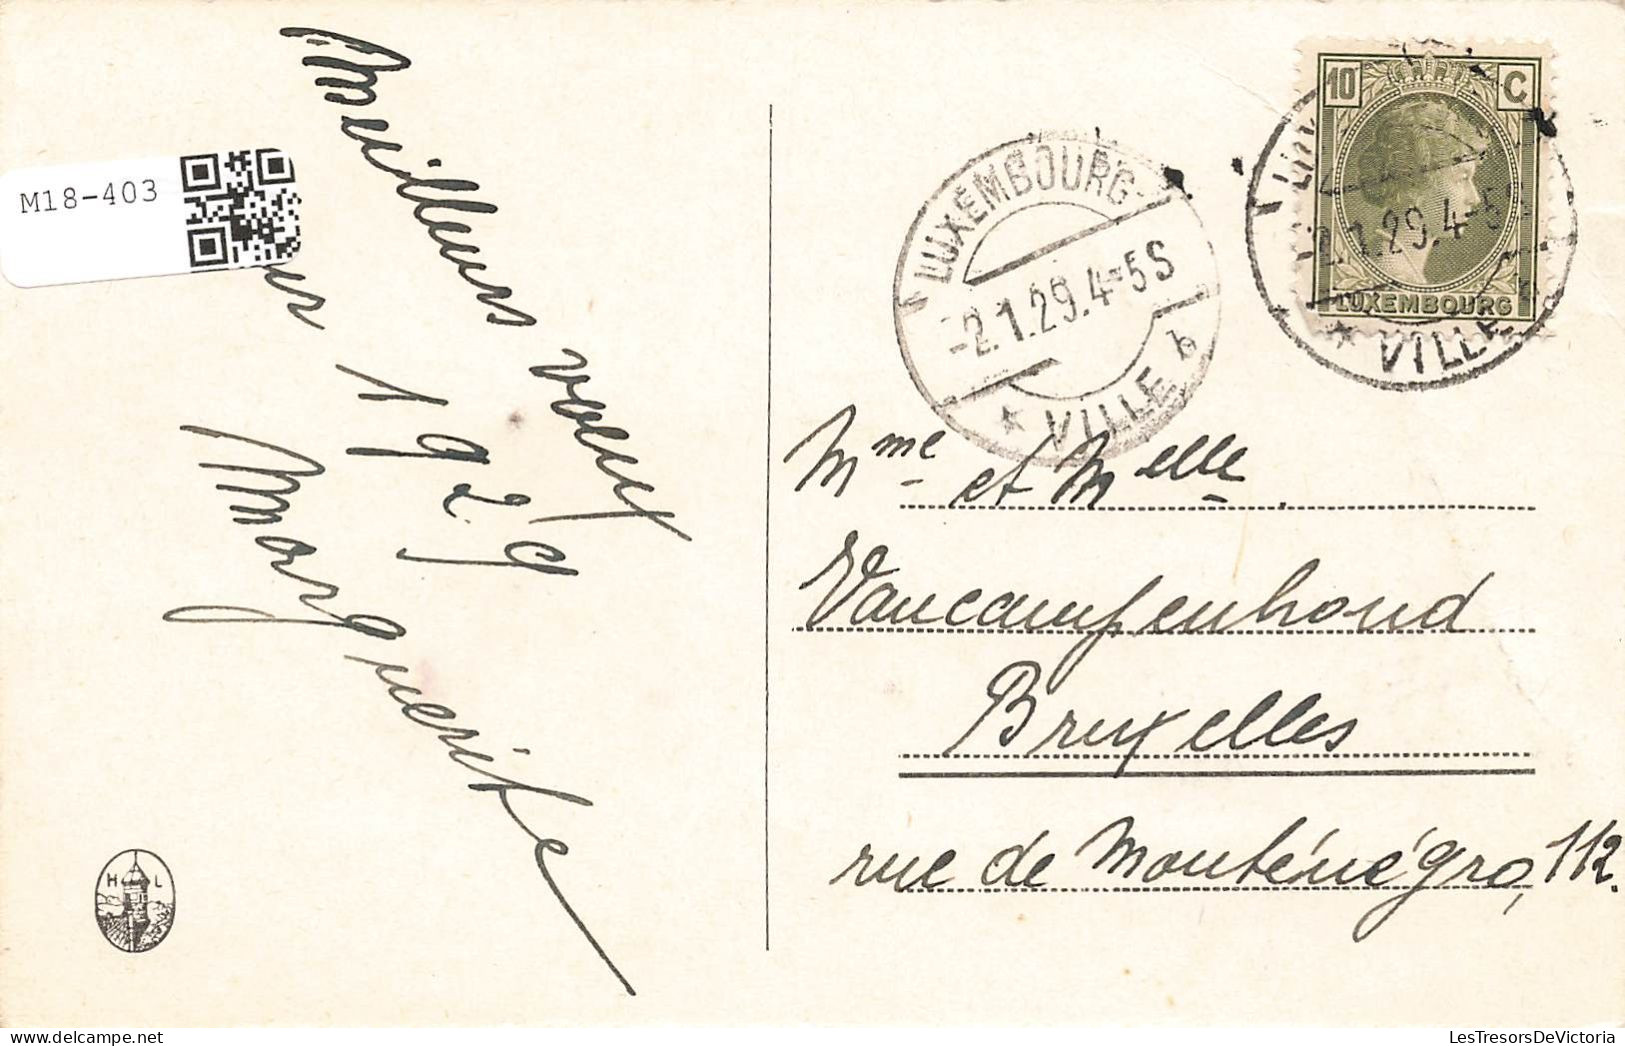 M18-403
Meilleurs voeux
1929
Marguerite
H L
10 C
LUXEMBOURG
LUXEMBOURG-
-2.1.29.4-5S
VILLE b
2.1.29.4-5S
VILLE
Mme et Melle
Vancampenhoud
Bruxelles
rue de Monténégro, 112.
LesTresorsDeVictoria